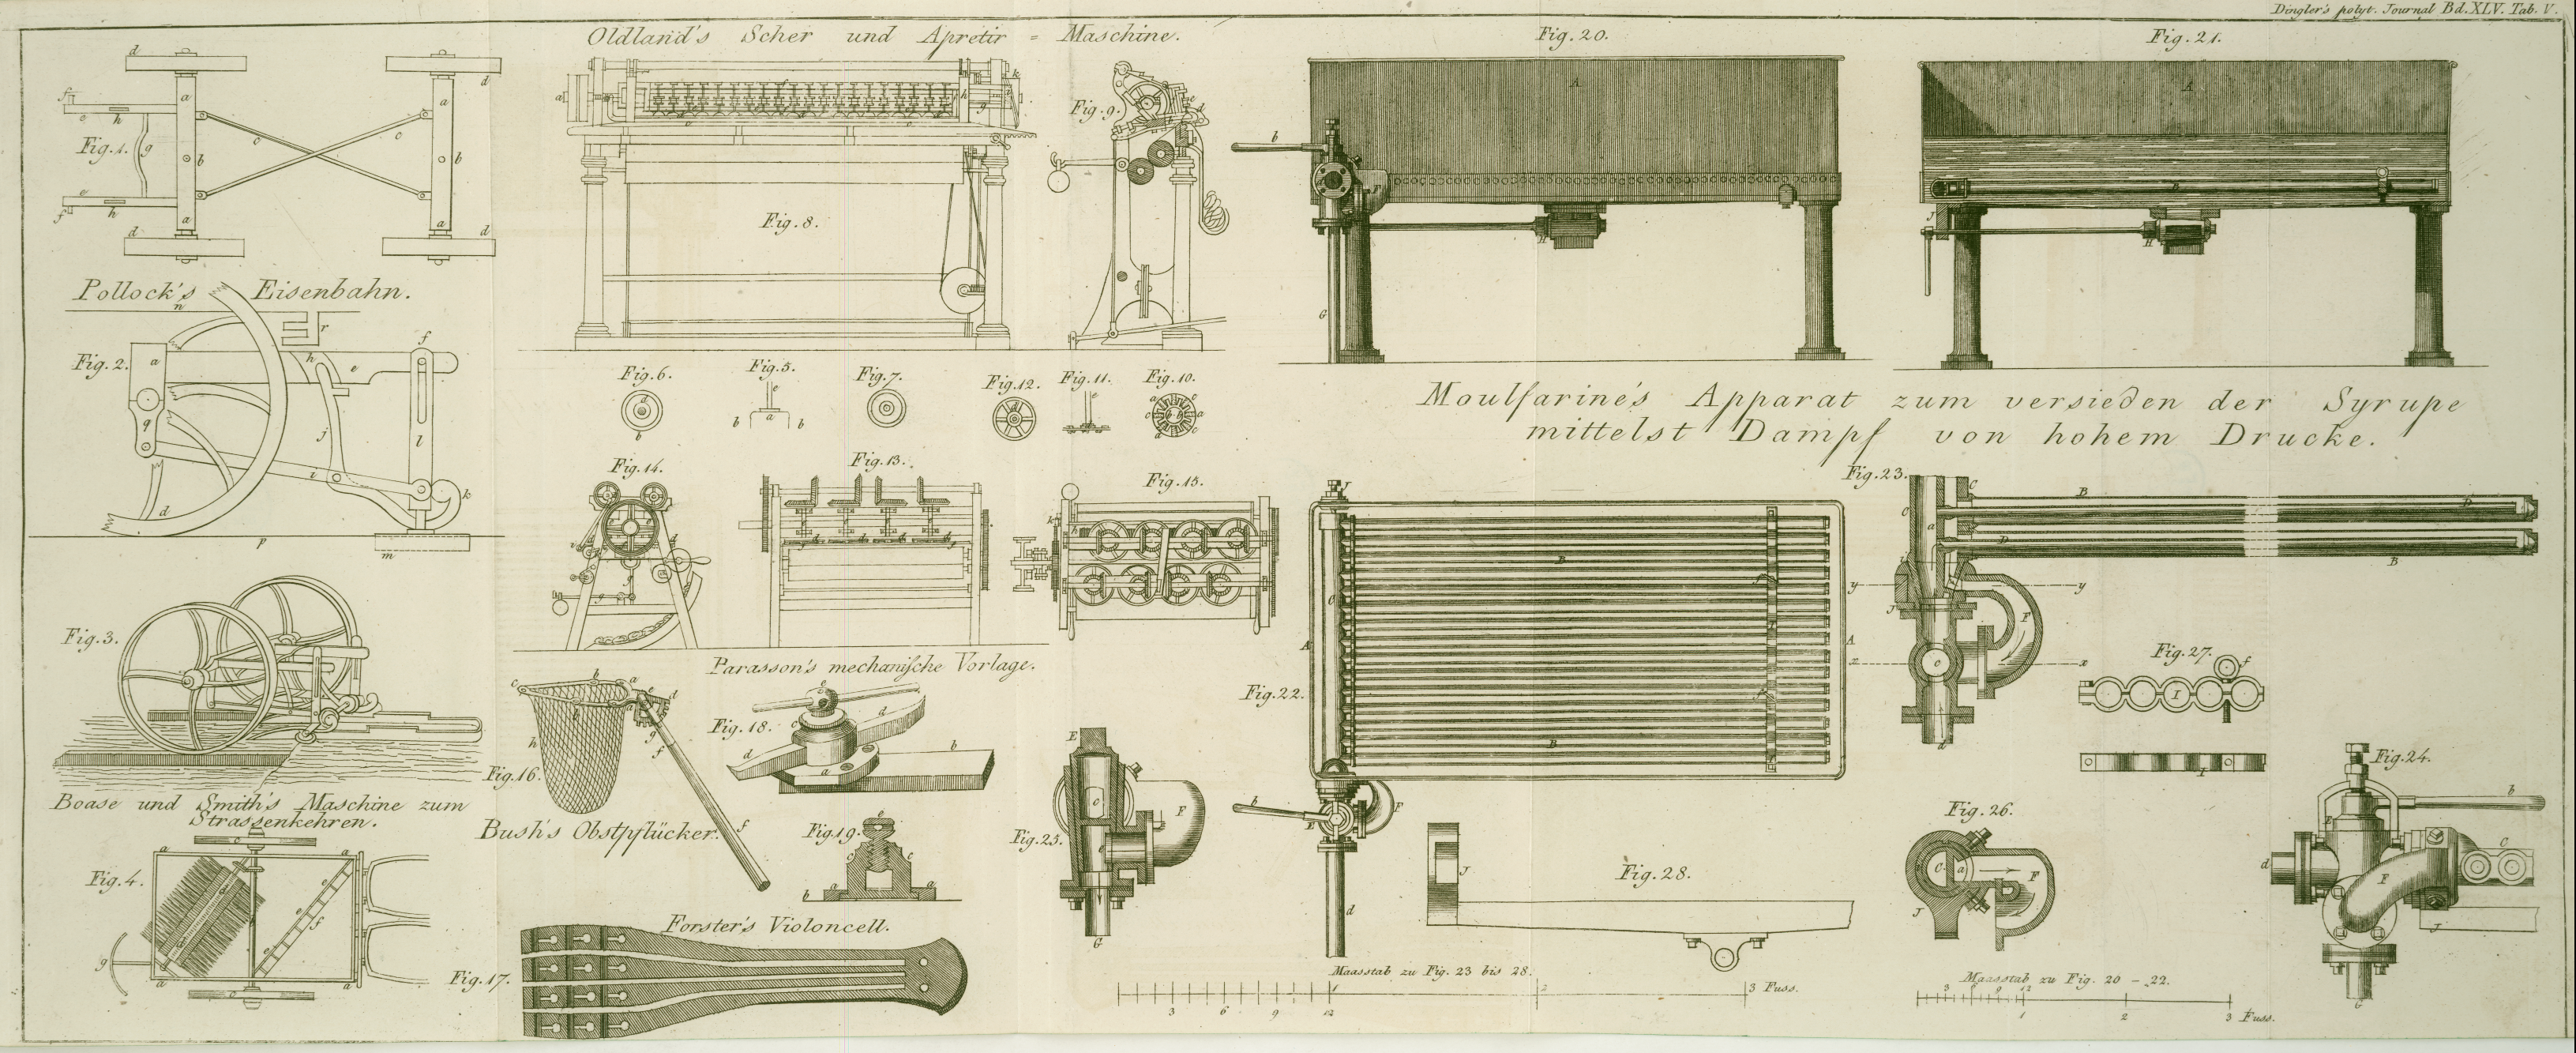 Dingler's polyt. Journal Bd. XLV. Tab. V.
Oldland's Scher und Apretir = Maschine.
Fig. 20.
Fig. 21.
Fig. 1.
Fig. 9.
Fig. 8.
Pollock's Eisenbahn.
Fig. 2.
Fig. 6.
Fig. 5.
Fig. 7.
Fig. 12.
Fig. 11.
Fig. 10.
Moulfarine's Apparat zum versieden der Syrupe
mittelst Dampf von hohem Drucke.
Fig. 14.
Fig. 13.
Fig. 15.
Fig. 23.
Fig. 3.
Parasson's mechanische Vorlage.
Fig. 27.
Fig. 22.
Fig. 18.
Fig. 16.
Fig. 24.
Boase und Smith's Maschine zum
Strassenkehren.
Bush's Obstpflücker.
Fig. 19.
Fig. 25.
Fig. 26.
Fig. 28.
Fig. 4.
Forster's Violoncell.
Fig. 17.
Maasstab zu Fig. 23 bis 28.
1 2 3 Fuss.
3 6 9 12
Maasstab zu Fig. 20 - 22.
3 6 9 12
1 2 3 Fuss.